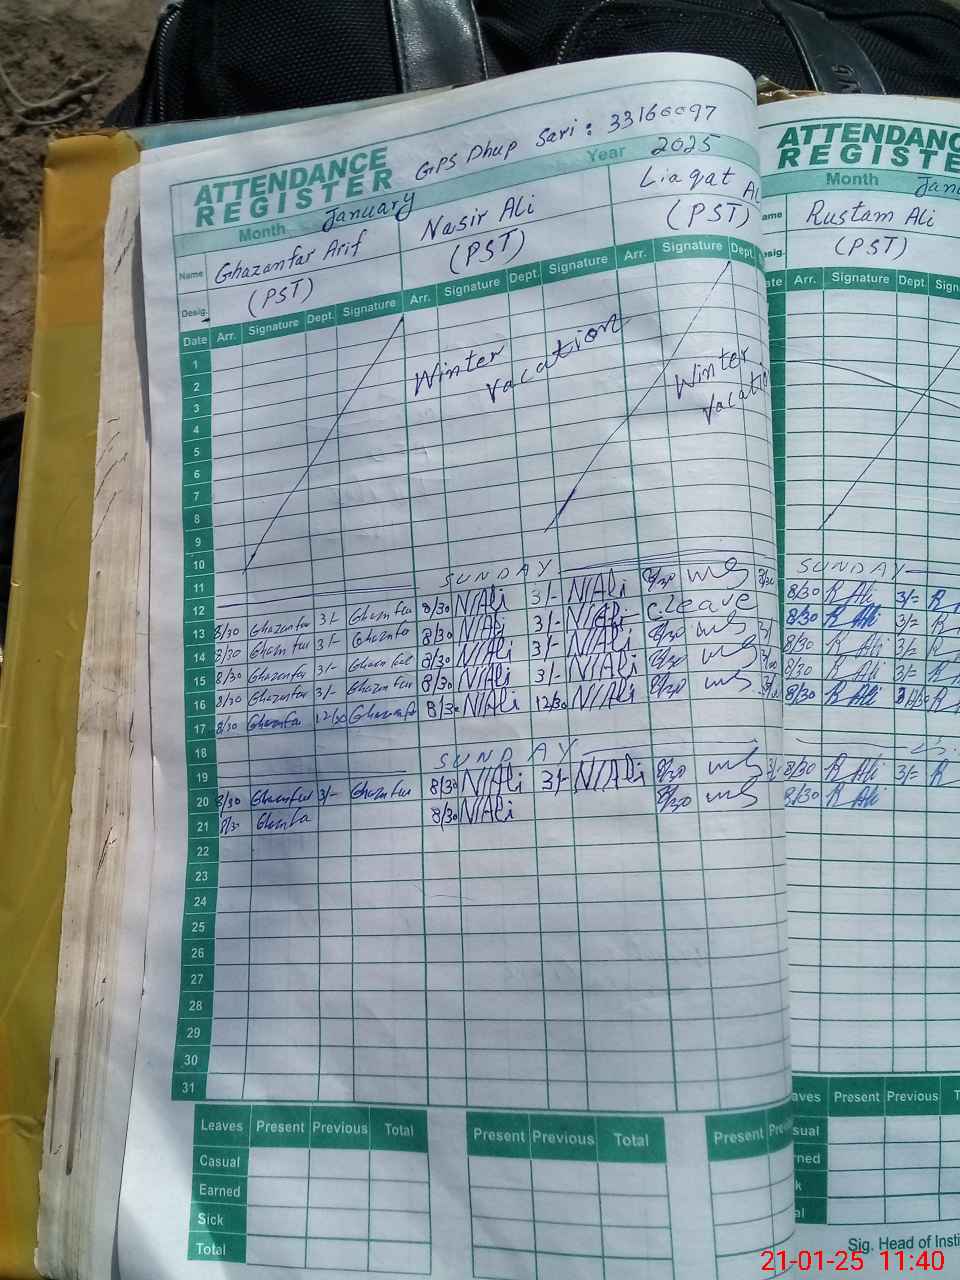 ATTENDANCE REGISTER GPS Dhup Sari : 33160097
Month January Year 2025
Name Ghazanfar Arif Nasir Ali Liaqat Al
Desig. (PST) (PST) (PST)
Date Arr. Signature Dept. Signature Arr. Signature Dept. Signature Arr. Signature Dept.
1
2 Winter vacation Winter
3 vacati
4
5
6
7
8
9
10
11
12 SUNDAY
13 8/30 Ghazanfar 3/- Ghazanfar 8/30 N/Ali 3/- N/Ali 8/30
14 8/30 Ghazanfar 3/- Ghazanfar 8/30 N/Ali 3/- N/Ali C.Leave
15 8/30 Ghazanfar 3/- Ghazanfar 8/30 N/Ali 3/- N/Ali 8/30
16 8/30 Ghazanfar 3/- Ghazanfar 8/30 N/Ali 3/- N/Ali 8/30
17 8/30 Ghazanfar 12/30 Ghazanfar 8/30 N/Ali 12/30 N/Ali 8/30
18
19 SUNDAY
20 8/30 Ghazanfar 3/- Ghazanfar 8/30 N/Ali 3/- N/Ali 8/30
21 8/30 Ghazanfar 8/30 N/Ali 8/30
22
23
24
25
26
27
28
29
30
31
Leaves Present Previous Total Present Previous Total Present Pre
Casual
Earned
Sick
Total
ATTENDANC
REGISTE
Month Janu
ame Rustam Ali
esig. (PST)
ate Arr. Signature Dept. Sign
SUNDAY
8/30 R Ali 3/= R
8/30 R Ali 3/= R
8/30 R Ali 3/= R
8/30 R Ali 3/= R
8/30 R Ali R
8/30 R Ali 3/= R
8/30 R Ali
aves Present Previous T
sual
rned
k
al
Sig. Head of Insti
21-01-25 11:40